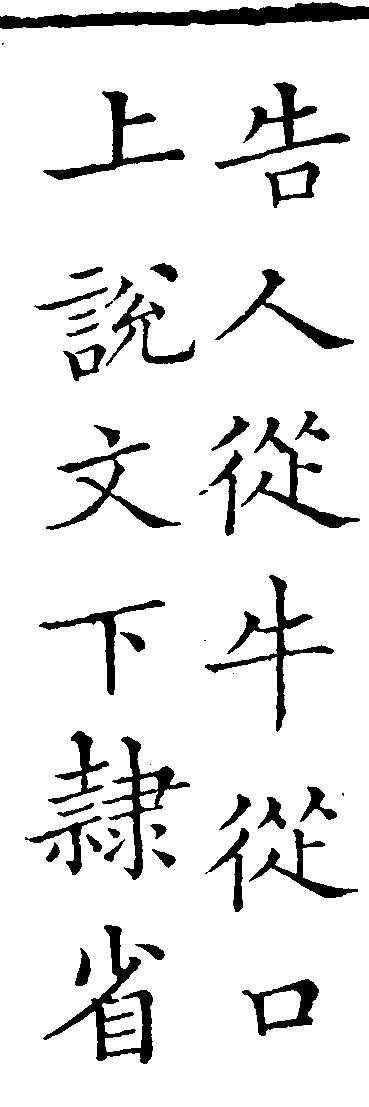 告人從牛從口
上說文下隸省